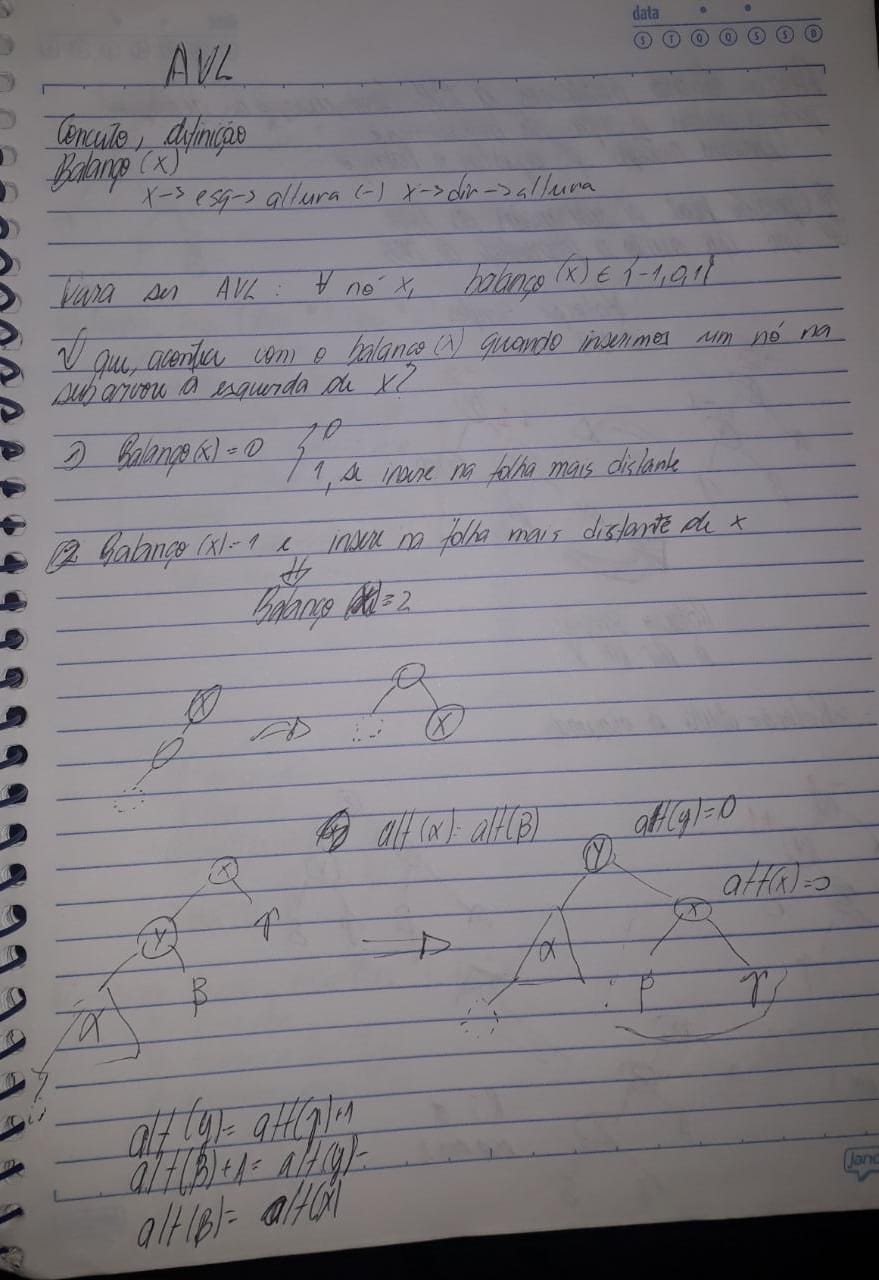 data
S T Q Q S S D
AVL
Conceito, definição
Balanço (x)
x -> esq -> altura (-) x -> dir -> altura
Para ser AVL : ∀ nó x, balanço (x) ∈ {-1,0,1}
O que, acontece com o balanço (x) quando inserimos um nó na
subarvore à esquerda de x?
1) Balanço (x) = 0 { 0
1, se insere na folha mais distante
2. Balanço (x) = 1 e insere na folha mais distante de x
⇓
Balanço (x) = 2
x
x
alt (α) = alt(β)
alt(y)=0
x
y
γ
β
α
y
alt(x)=0
x
α
β
γ
alt (y) = alt(γ)+1
alt(β)+1 = alt(y) =
alt(β) =
Jand